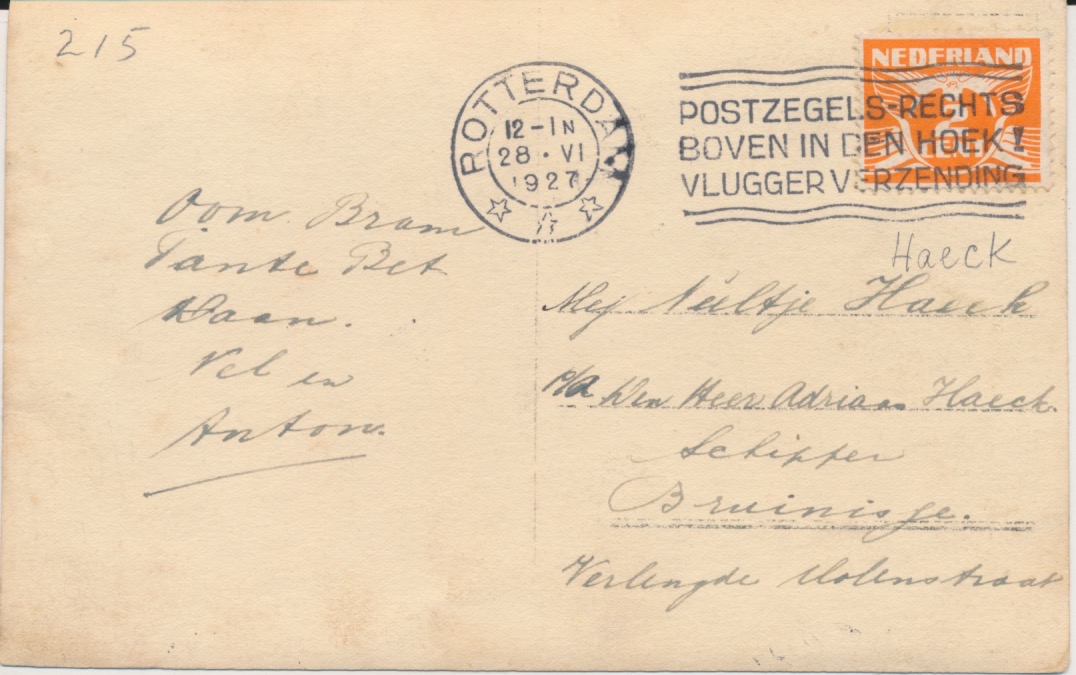 215
ROTTERDAM
12-1N
28 · VI
1927
NEDERLAND
2
CENT
POSTZEGELS-RECHTS
BOVEN IN DEN HOEK!
VLUGGER VERZENDING
Oom Bram
Tante Bet
Daan.
Nel en
Anton.
Haeck
Mej Neeltje Haeck
p/a Den Heer Adriaan Haeck.
Schipper
Bruinisse.
Verlengde Molenstraat